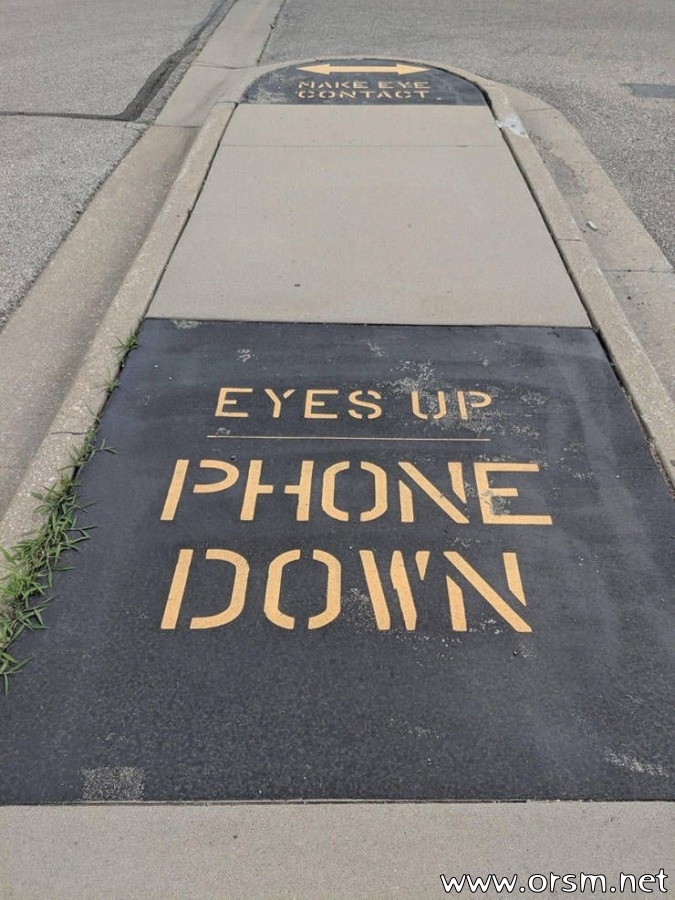 MAKE EYE
CONTACT
EYES UP
PHONE
DOWN
www.orsm.net